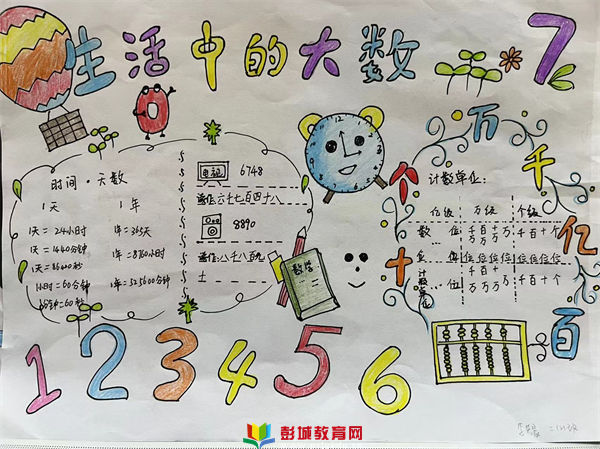 生活中的大数
7
0
时间·天数
1天
1年
1天=24小时
1年=365天
1天=1440分钟
1年=8760小时
1天=86400秒
1小时=60分钟
1年=525600分钟
1分钟=60秒
电视 6748
读作:六千七百四十八
8890
读作:八千八百九
十
数学
个十百千万亿
计数单位:
亿级 万级 个级
数位 千万 百万 十万 万 千 百 十 个
位 位 位 位 位 位 位 位
计数单位 … 千万 百万 十万 万 千 百 十 个
1 2 3 4 5 6
彭城教育网